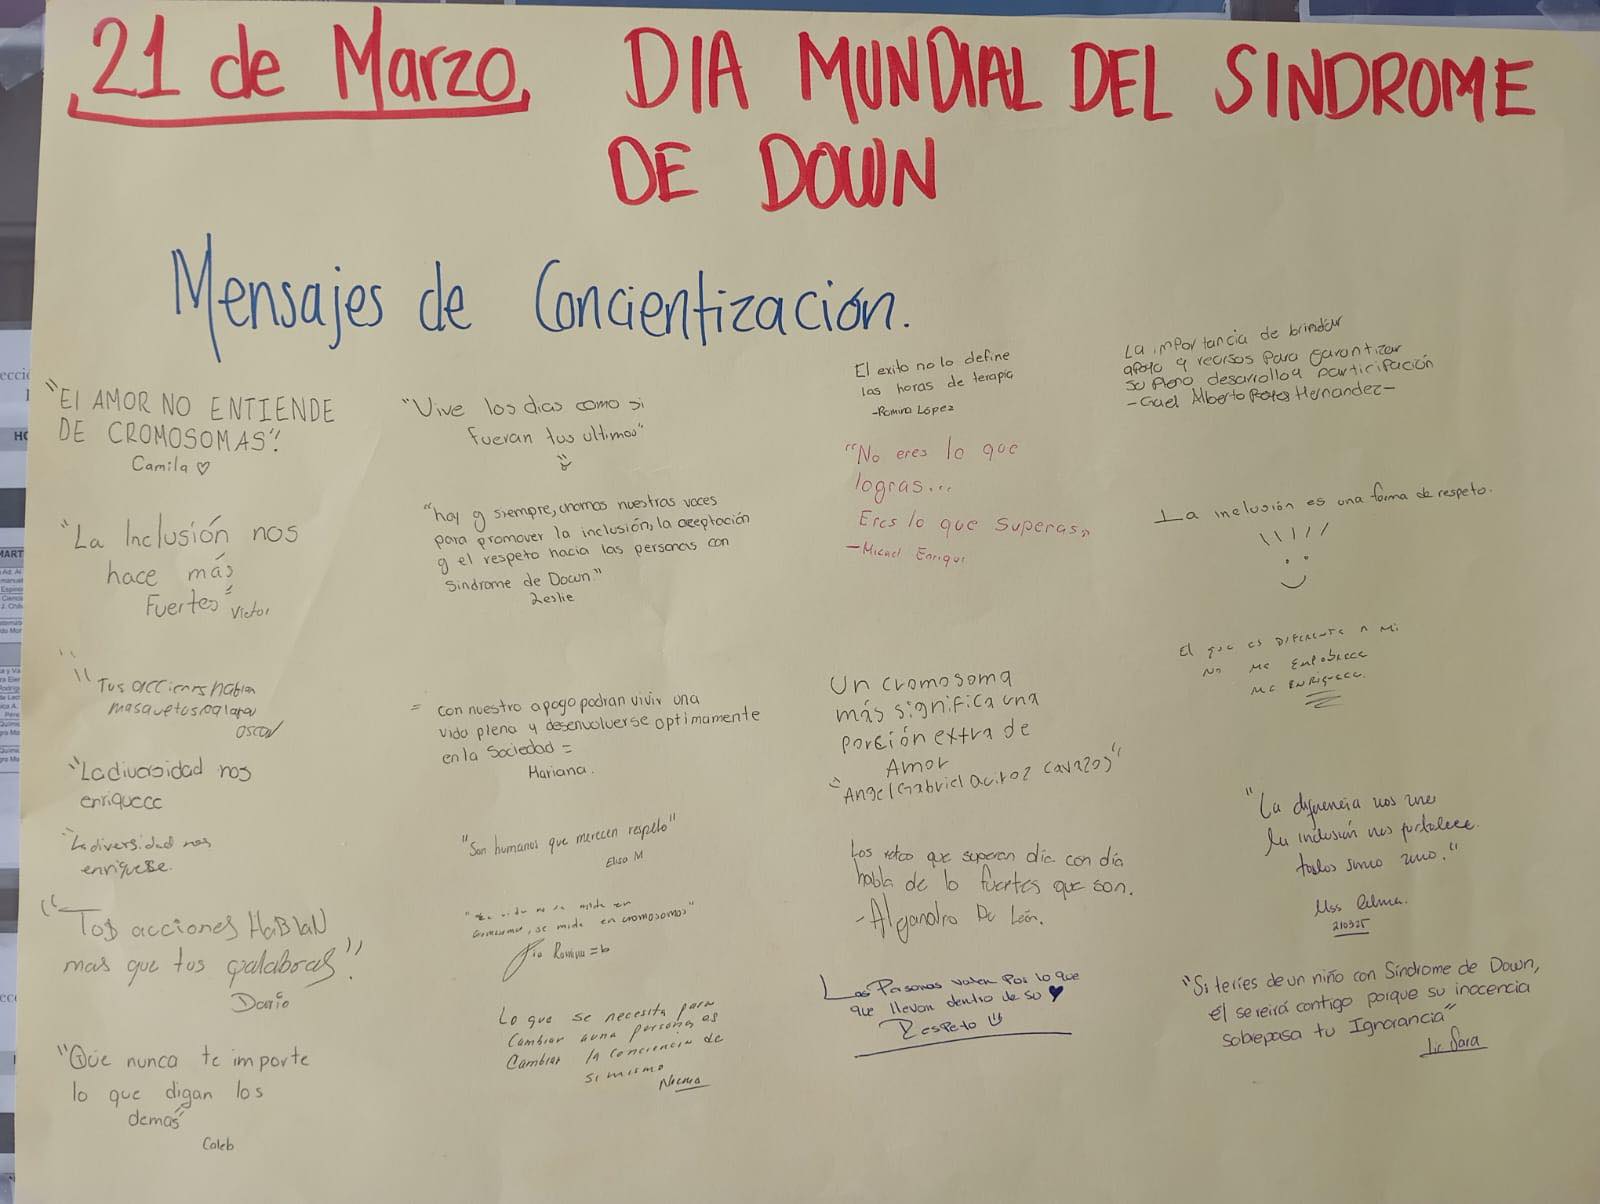 21 de Marzo, DIA MUNDIAL DEL SINDROME
DE DOWN
Mensajes de Concientización.
"El AMOR NO ENTIENDE
DE CROMOSOMAS"!
Camila ♡
"La Inclusión nos
hace más
Fuertes" Victor
"Tus acciones hablan
mas que tus palabras
oscar
"La diversidad nos
enriquece
"La diversidad nos
enriquese.
"Tus acciones HaBlaN
mas que tus palabras"
Dario
"Que nunca te importe
lo que digan los
demás"
Caleb
"Vive los dias como si
fueran tus ultimos"
"hoy y siempre, unamos nuestras voces
para promover la inclusión, la aceptación
y el respeto hacia las personas con
Sindrome de Down."
Leslie
= con nuestro apoyo podran vivir una
vida plena y desenvolverse optimamente
en la Sociedad =
Mariana.
"Son humanos que merecen respeto"
Elisa M
"La vida no se mide en
cromosomas, se mide en cromosomos"
Romina =b
Lo que se necesita para
Cambiar a una persona es
Cambiar la conciencia de
si mismo
Norma
El exito no lo define
las horas de terapia
-Romina López
"No eres lo que
logras...
Eres lo que superas"
-Micael Enrique
Un cromosoma
más significa una
porción extra de
Amor
"Angel Gabriel Cavazos"
Los retos que superan día con día
habla de lo fuertes que son.
-Alejandro De León.
Las Personas valen Por lo que
que llevan dentro de su ♥
Respeto
La importancia de brindar
apoyo y recursos para garantizar
su pleno desarrollo y participación
-Gael Alberto Hernandez-
La inclusión es una forma de respeto.
El que es DIFERENTE A Mi
No Me EMPOBRECE
Me ENRIQUECE.
"La diferencia nos une
la inclusión nos fortalece
todos somos uno."
Mss Celma.
210325
"Si te ríes de un niño con Síndrome de Down,
él se reirá contigo porque su inocencia
sobrepasa tu Ignorancia"
Lic Sara